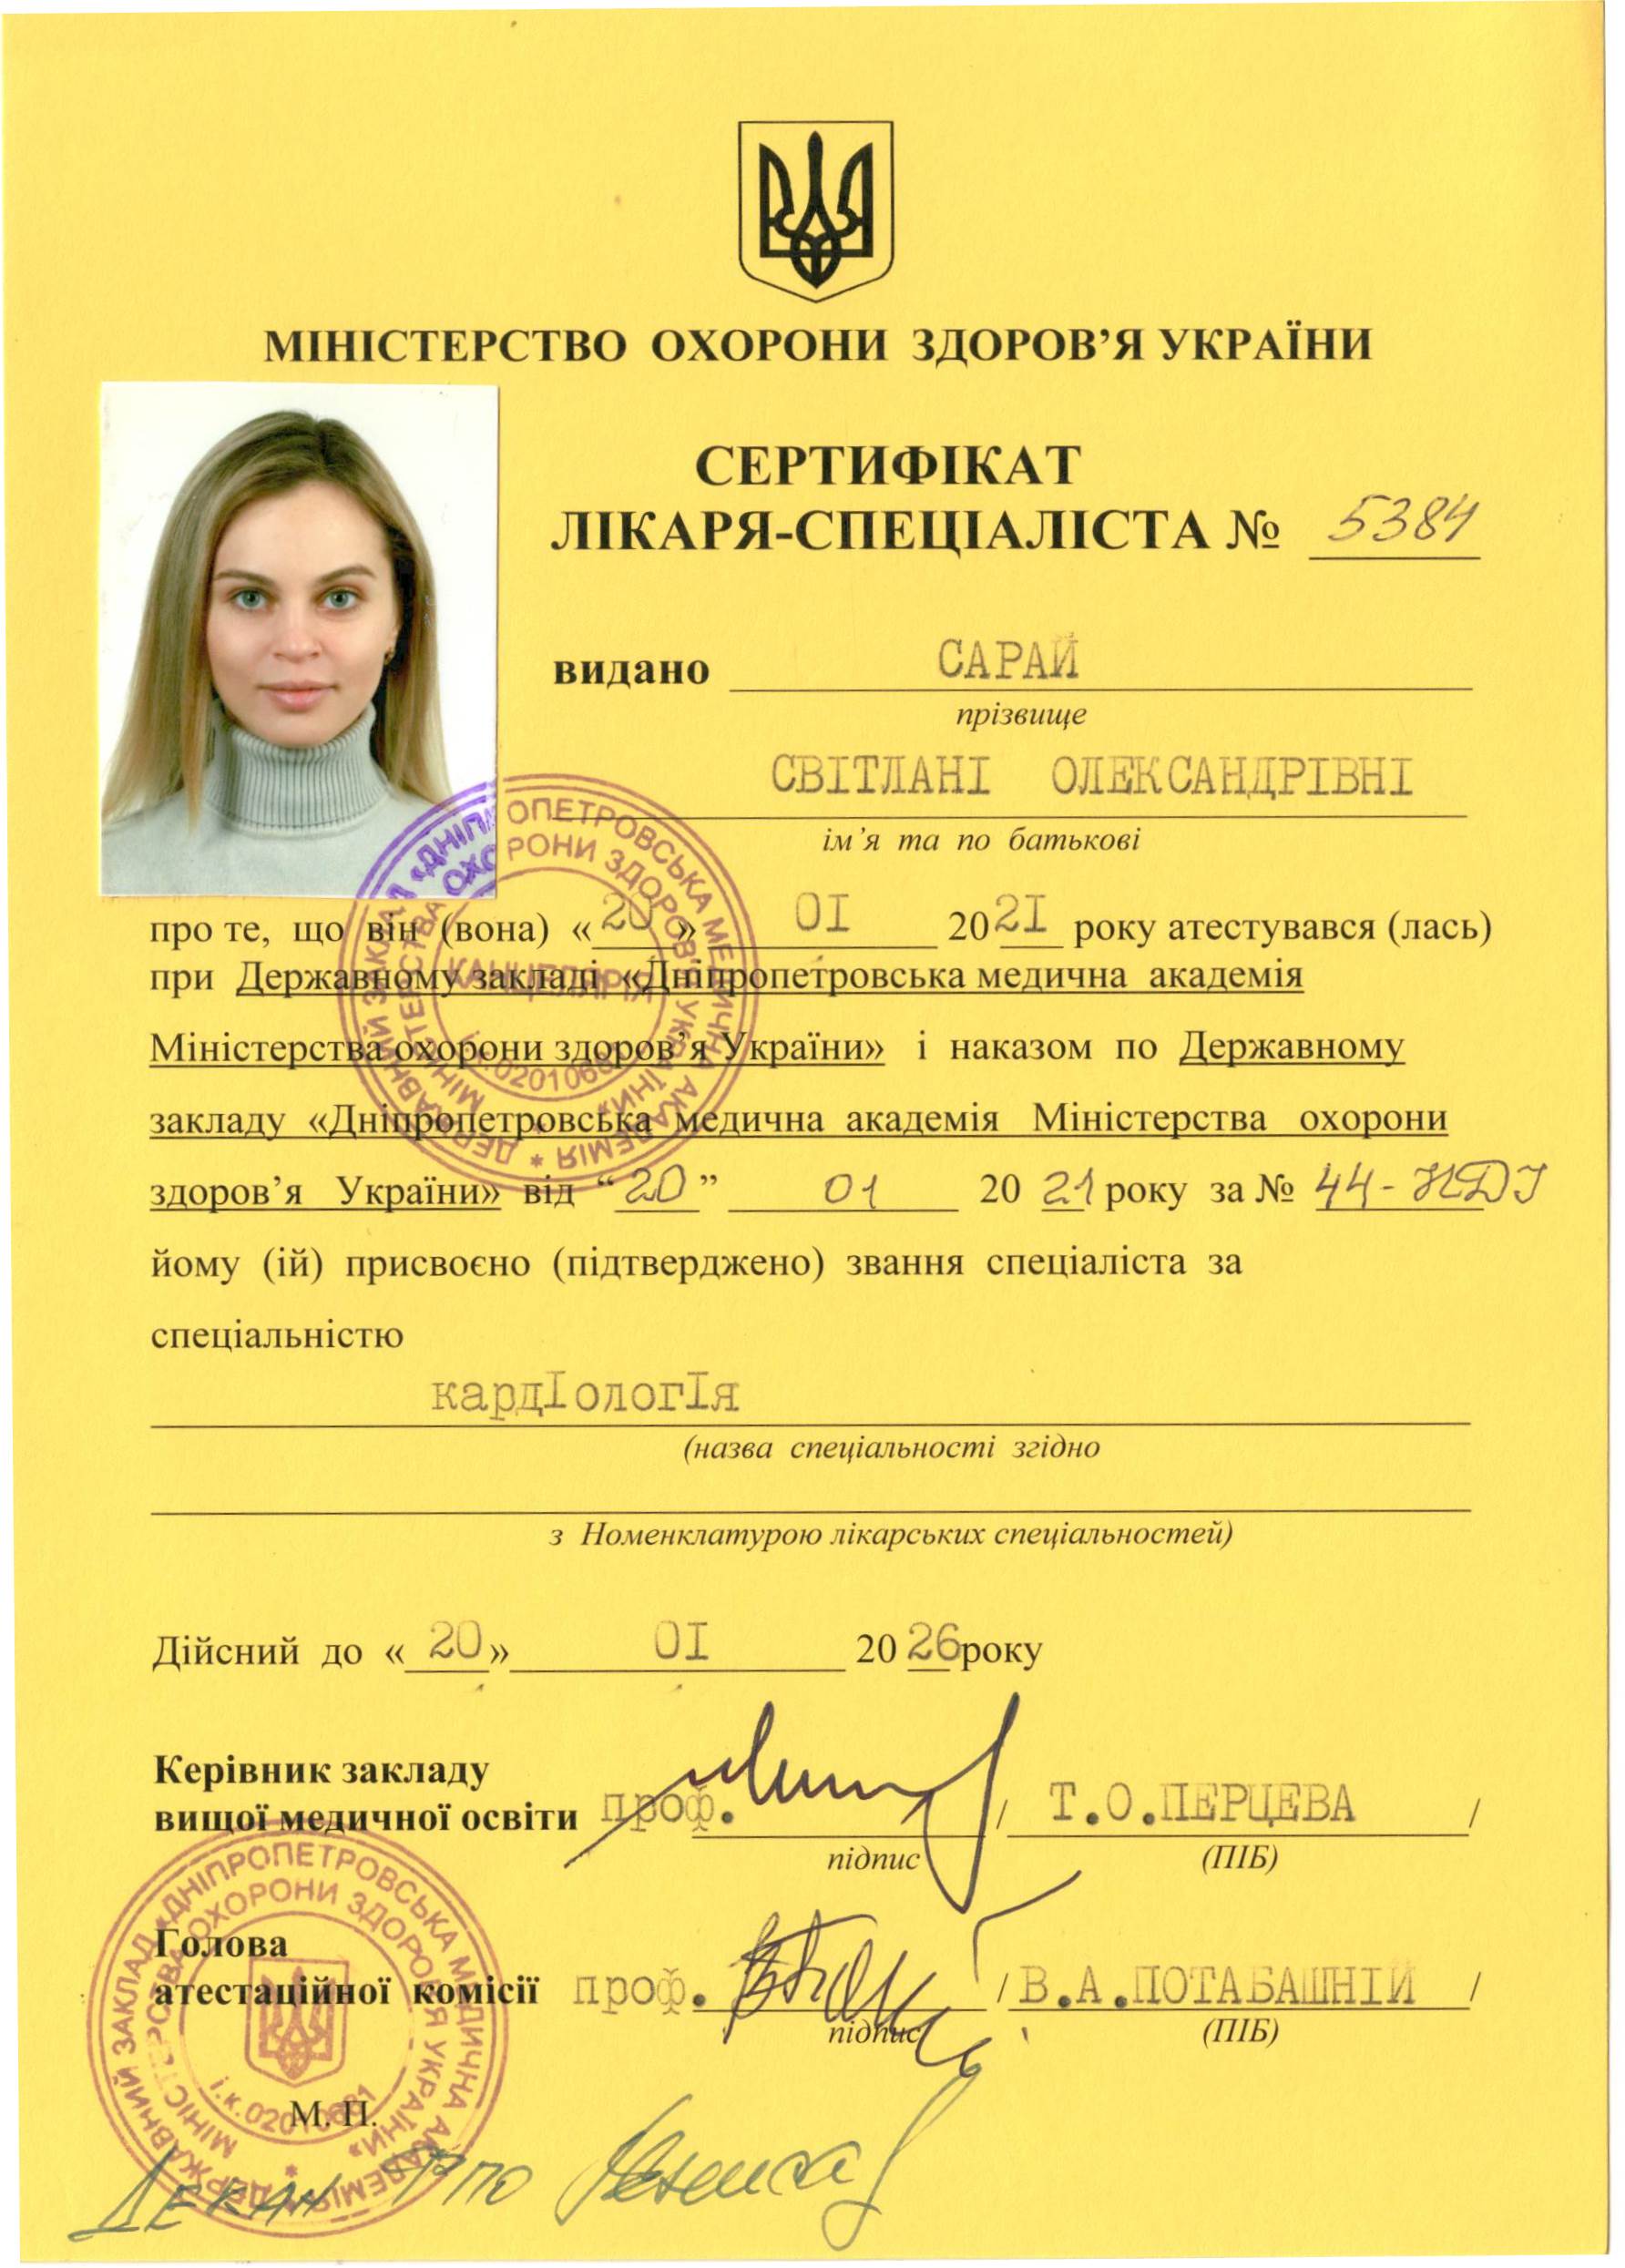 МІНІСТЕРСТВО ОХОРОНИ ЗДОРОВ’Я УКРАЇНИ
СЕРТИФІКАТ
ЛІКАРЯ-СПЕЦІАЛІСТА № 5384
видано САРАЙ
прізвище
СВІТЛАНІ ОЛЕКСАНДРІВНІ
ім’я та по батькові
про те, що він (вона) «20» 0I 202I року атестувався (лась)
при Державному закладі «Дніпропетровська медична академія
Міністерства охорони здоров’я України» і наказом по Державному
закладу «Дніпропетровська медична академія Міністерства охорони
здоров’я України» від “20” 01 2021 року за № 44-НДІ
йому (ій) присвоєно (підтверджено) звання спеціаліста за
спеціальністю
кардIологIя
(назва спеціальності згідно
з Номенклатурою лікарських спеціальностей)
Дійсний до «20» 0I 2026 року
Керівник закладу
вищої медичної освіти проф. / Т.О.ПЕРЦЕВА /
підпис (ПІБ)
Голова
атестаційної комісії проф. / В.А.ПОТАБАШНІЙ /
підпис (ПІБ)
М. П.
ДЕКАН ФПО
ДЕРЖАВНИЙ ЗАКЛАД «ДНІПРОПЕТРОВСЬКА МЕДИЧНА АКАДЕМІЯ
МІНІСТЕРСТВА ОХОРОНИ ЗДОРОВ’Я УКРАЇНИ»
КАНЦЕЛЯРІЯ
і.к.02010681
ДЕРЖАВНИЙ ЗАКЛАД «ДНІПРОПЕТРОВСЬКА МЕДИЧНА АКАДЕМІЯ
МІНІСТЕРСТВА ОХОРОНИ ЗДОРОВ’Я УКРАЇНИ»
і.к.02010681